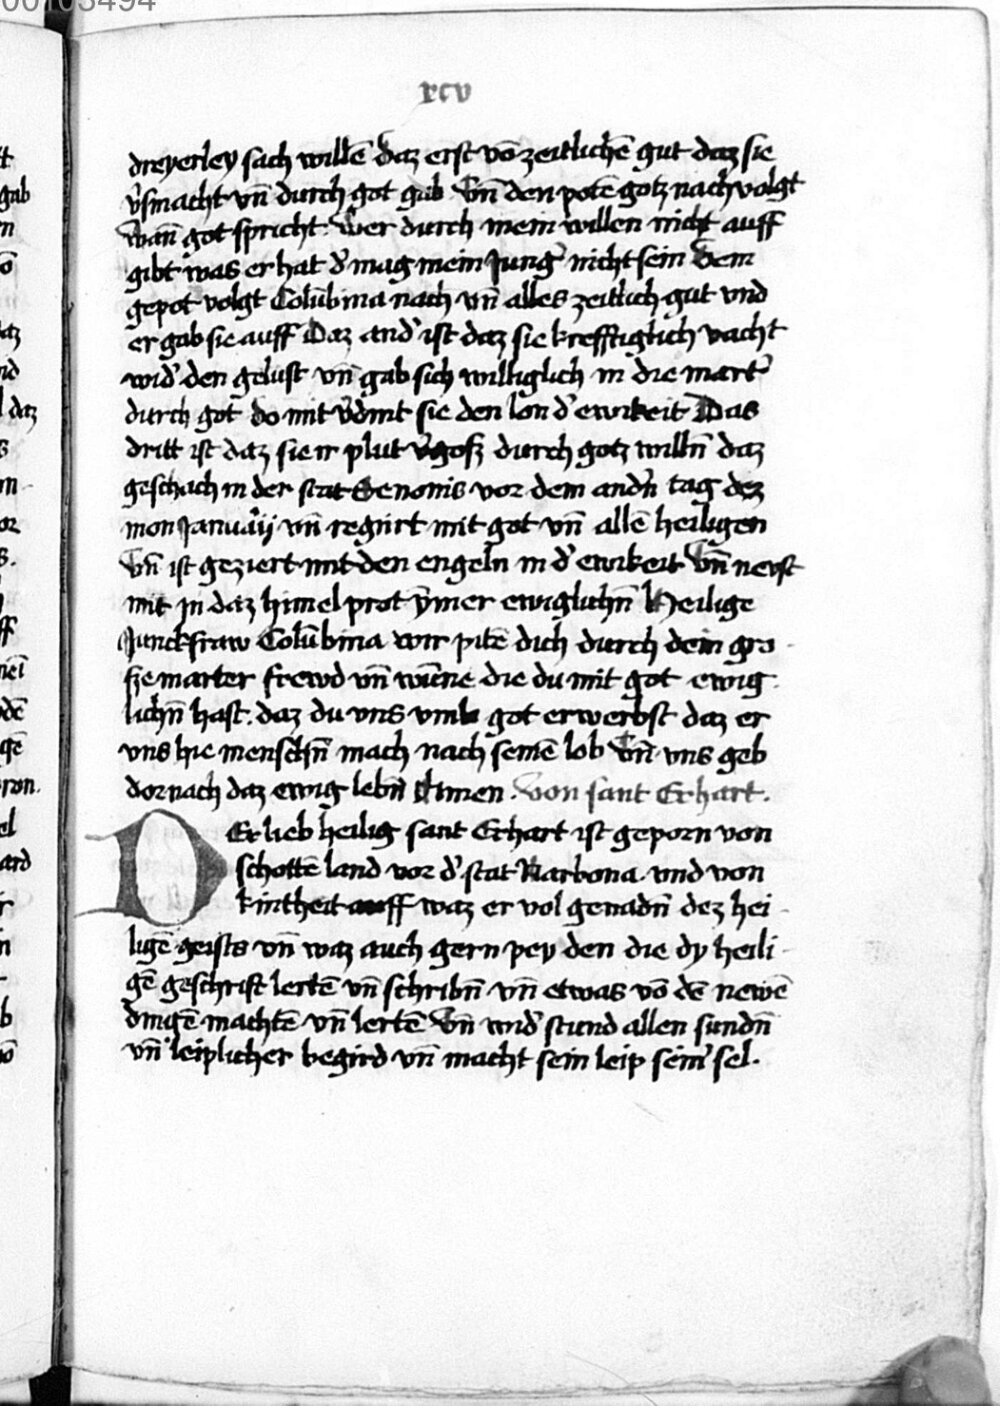 xcv
dreyerley sach willē daz erst vō zeitlichē gut daz sie
v̓smacht vn̄ durch got gab Vn̄ den potē gotz nach volgt
wan̄ got spricht. Wer durch mein willen nicht auff
gibt was er hat d̓ mag mein Jung̓ nicht sein Dem
gepot volgt Colūbina nach vn̄ alles zeitlich gut vnd
er gab sie auff Daz and̓ ist daz sie krefftiglich vacht
wid̓ den gelust vn̄ gab sich williglich in die mart̓
durch got do mit v̓dint sie den lon d̓ ewikeit Das
dritt ist daz sie ir plut v̓gosz durch gotz willn̄ daz
geschach in der stat Senonis vor dem andn̄ tag dez
mon Januarij vn̄ regnirt mit got vn̄ allē heiligen
Vn̄ ist geziert mit den engeln in d̓ ewikeit Vn̄ neust
mit in daz himel prot ȳmer ewiglichn̄ Heilige
Junckfraw Colūbina wir pitē dich durch dein gro
sze marter frewd vn̄ wūne die du mit got ewig
lichn̄ hast. daz du vns vmb got erwerbst daz er
vns hie menschn̄ mach nach seinē lob Vn̄ vns geb
dornach daz ewig lebn̄ Amen. Von sant Erhart.
DEr lieb heilig sant Erhart ist geporn von
schottē land vor d̓ stat Narbona vnd von
kintheit auff waz er vol genadn̄ dez hei
ligē geists vn̄ waz auch gern pey den die dy heili
gē geschrift lertē vn̄ schribn̄ vn̄ etwas vō dē newē
dingē machtē vn̄ lertē Vn̄ wid̓ stund allen sundn̄
vn̄ leiplicher begird vn̄ macht sein leip sein̓ sel.